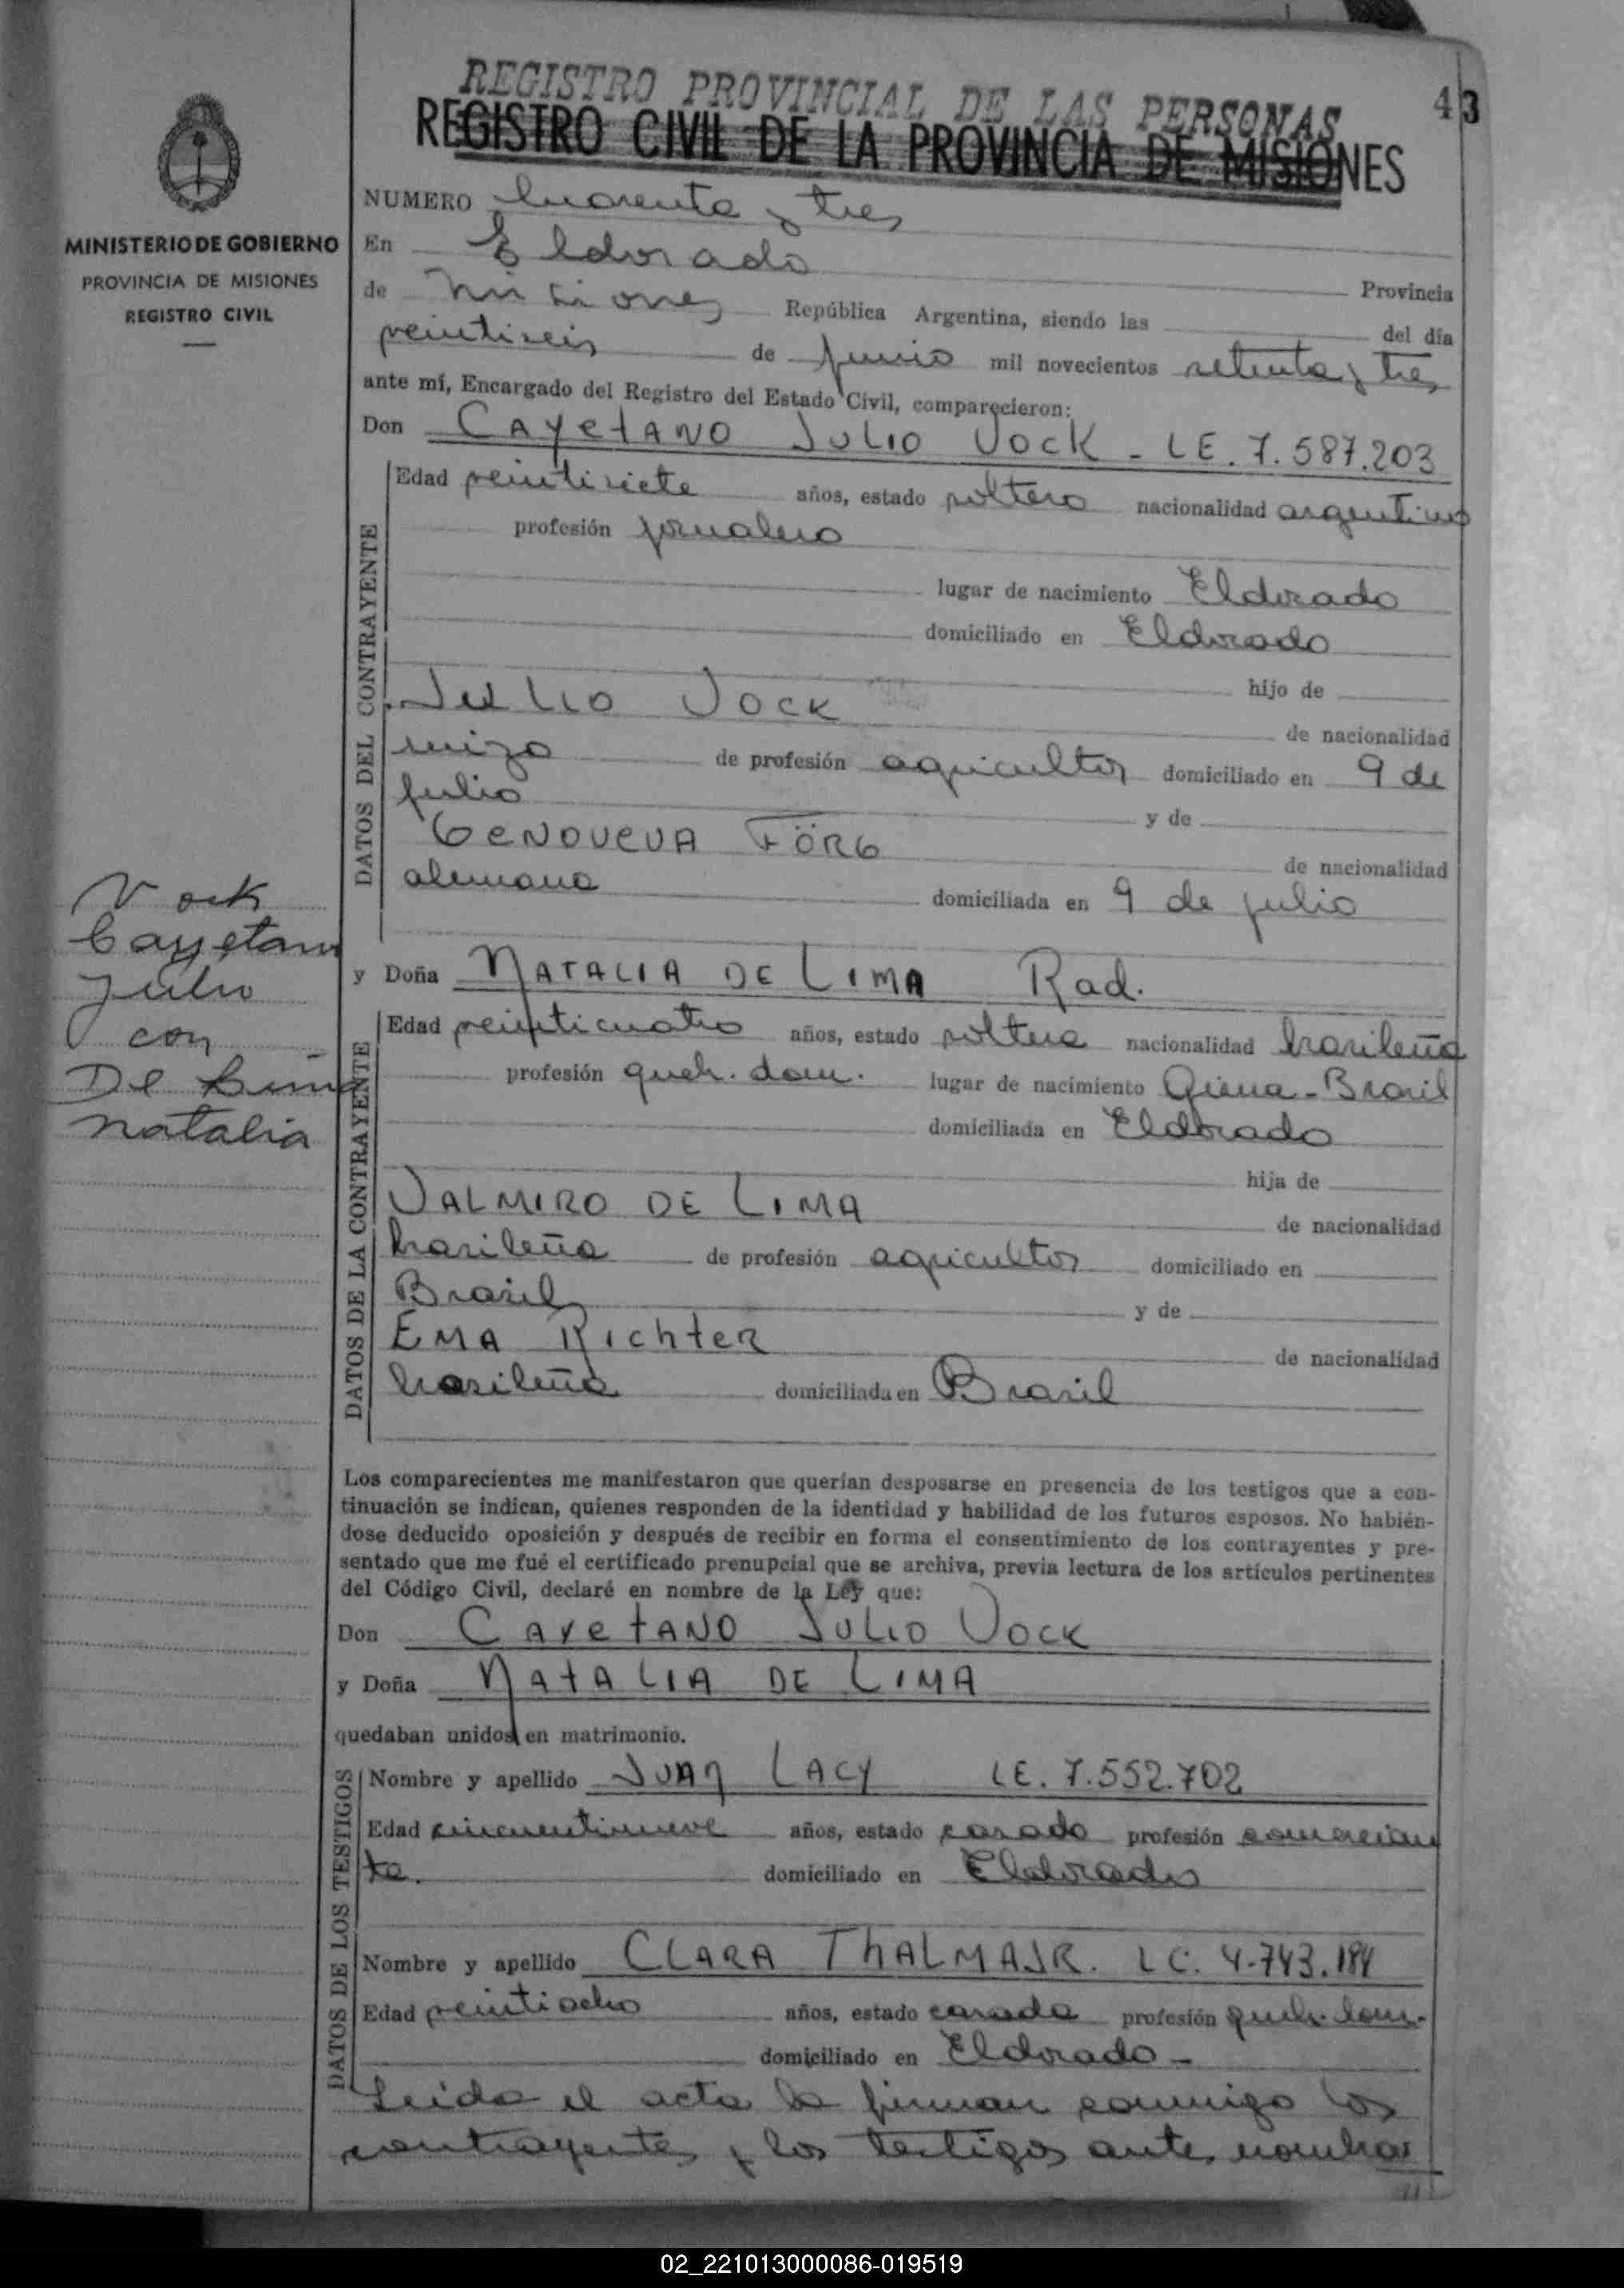 REGISTRO PROVINCIAL DE LAS PERSONAS
43
REGISTRO CIVIL DE LA PROVINCIA DE MISIONES
MINISTERIO DE GOBIERNO
PROVINCIA DE MISIONES
REGISTRO CIVIL
NUMERO Cuarenta y tres
En Eldorado
Provincia
de Misiones República Argentina, siendo las del día
veintiseis de junio mil novecientos setenta y tres
ante mí, Encargado del Registro del Estado Civil, comparecieron:
Don CAYETANO JULIO VOCK - LE. 7.587.203
DATOS DEL CONTRAYENTE
Edad veintisiete años, estado soltero nacionalidad argentino
profesión jornalero
lugar de nacimiento Eldorado
domiciliado en Eldorado
hijo de
JULIO VOCK
de nacionalidad
suizo de profesión agricultor domiciliado en 9 de
julio
y de
GENOVEVA FÖRG
de nacionalidad
alemana domiciliada en 9 de julio
Vock
Cayetano
Julio
con
De Lima
Natalia
y Doña NATALIA DE LIMA Rad.
DATOS DE LA CONTRAYENTE
Edad veinticuatro años, estado soltera nacionalidad brasileña
profesión queh. dom. lugar de nacimiento - Brasil
domiciliada en Eldorado
hija de
VALMIRO DE LIMA
de nacionalidad
brasileña de profesión agricultor domiciliado en
Brasil
y de
EMA RICHTER
de nacionalidad
brasileña domiciliada en Brasil
Los comparecientes me manifestaron que querían desposarse en presencia de los testigos que a con-
tinuación se indican, quienes responden de la identidad y habilidad de los futuros esposos. No habién-
dose deducido oposición y después de recibir en forma el consentimiento de los contrayentes y pre-
sentado que me fué el certificado prenupcial que se archiva, previa lectura de los artículos pertinentes
del Código Civil, declaré en nombre de la Ley que:
Don CAYETANO JULIO VOCK
y Doña NATALIA DE LIMA
quedaban unidos en matrimonio.
DATOS DE LOS TESTIGOS
Nombre y apellido JUAN LACY LE. 7.552.702
Edad cincuentinueve años, estado casado profesión comercian
te. domiciliado en Eldorado
Nombre y apellido CLARA THALMAJR. LC. 4.743.184
Edad veintiocho años, estado casada profesión queh. dom.
domiciliado en Eldorado -
Leida el acta la firman conmigo los
contrayentes y los testigos antes nombra
02_221013000086-019519